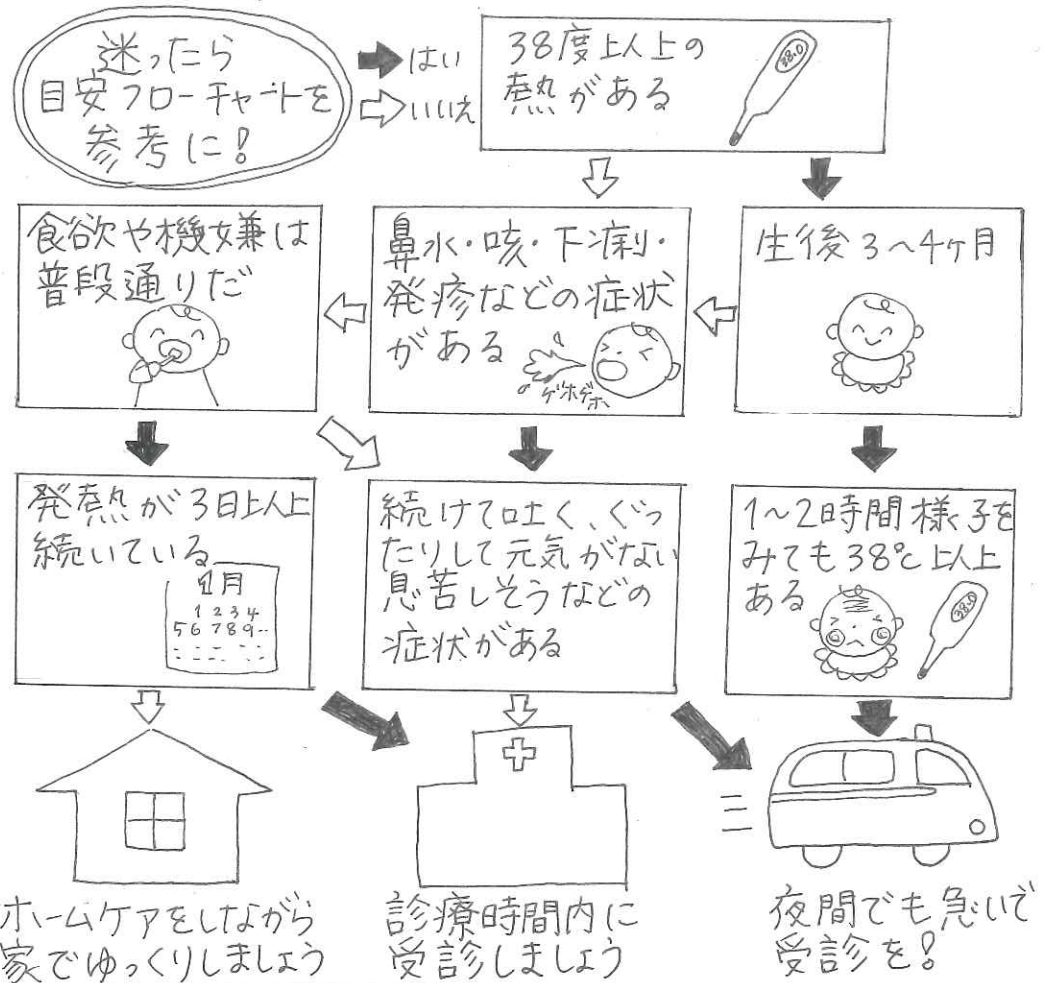 迷ったら
目安フローチャートを
参考に!
はい
いいえ
38度以上の
熱がある
38.0
食欲や機嫌は
普段通りだ
鼻水・咳・下痢・
発疹などの症状
がある
ゲホゲホ
生後3~4ヶ月
発熱が3日以上
続いている
1月
1 2 3 4
5 6 7 8 9..
続けて吐く、ぐっ
たりして元気がない
息苦しそうなどの
症状がある
1~2時間様子を
みても38℃以上
ある
38.0
ホームケアをしながら
家でゆっくりしましょう
診療時間内に
受診しましょう
夜間でも急いで
受診を!